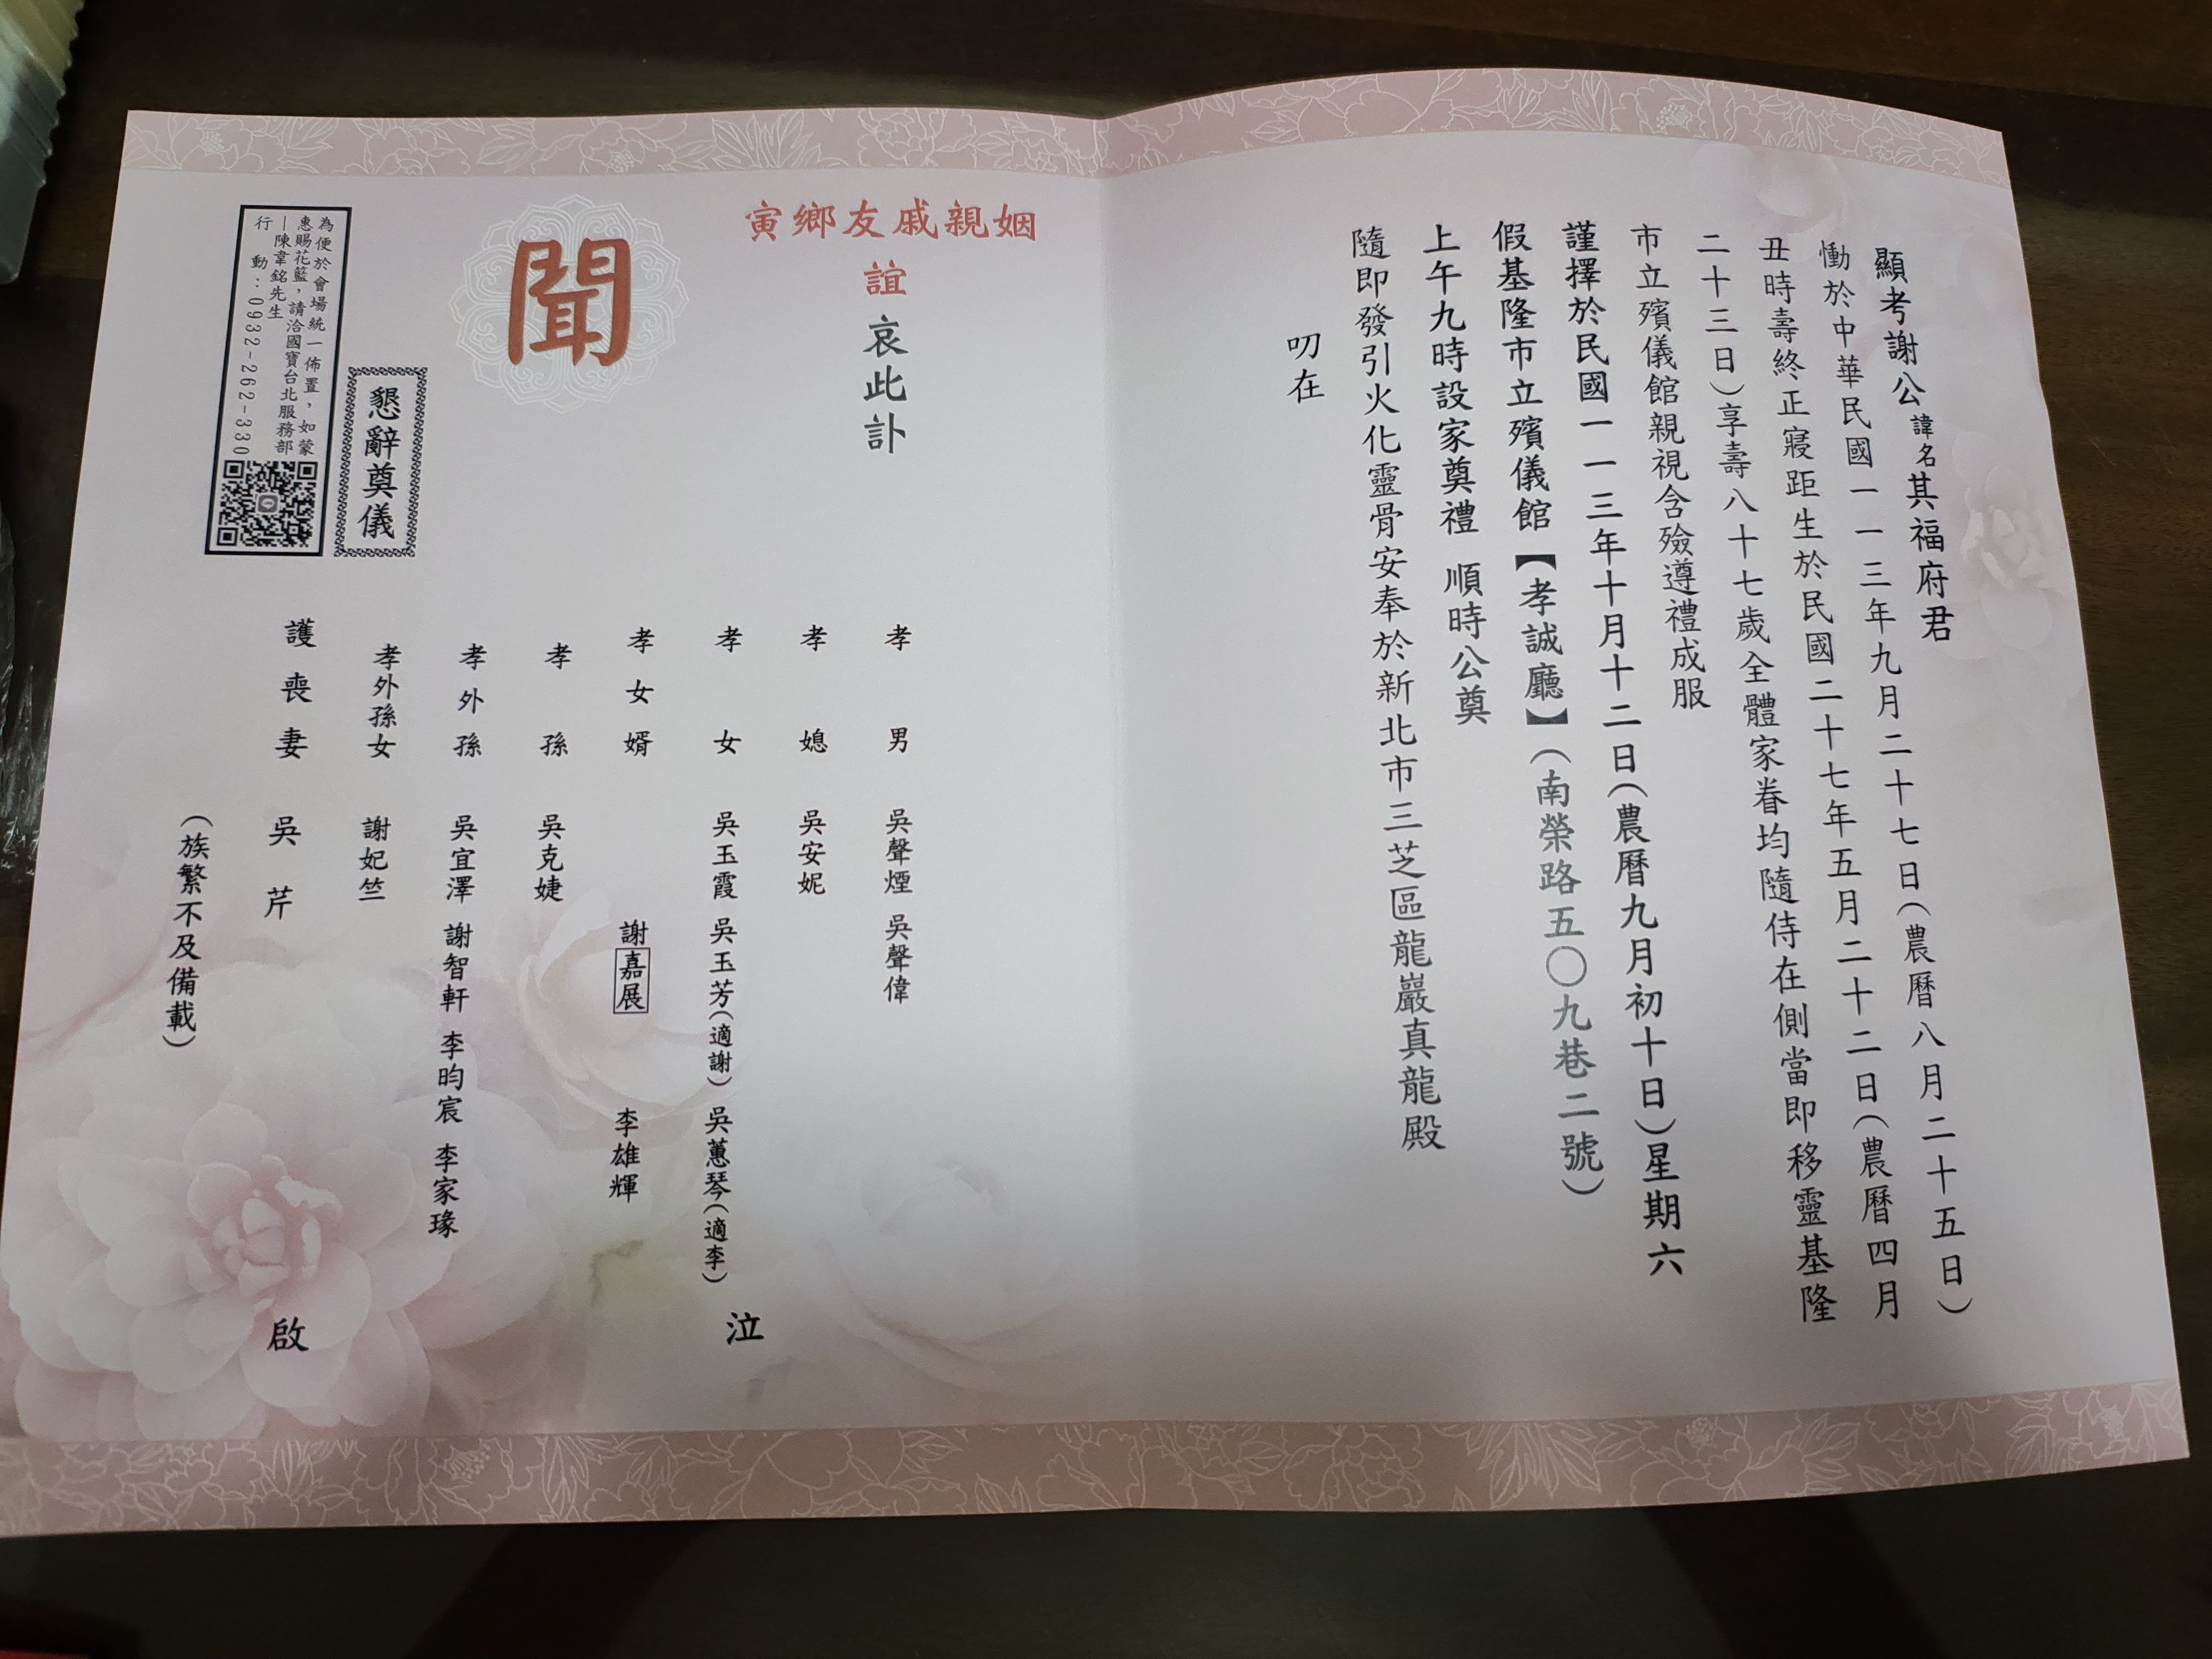 顯考謝公諱名其福府君
慟於中華民國一一三年九月二十七日(農曆八月二十五日)
丑時壽終正寢距生於民國二十七年五月二十二日(農曆四月
二十三日)享壽八十七歲全體家眷均隨侍在側當即移靈基隆
市立殯儀館親視含殮遵禮成服
謹擇於民國一一三年十月十二日(農曆九月初十日)星期六
假基隆市立殯儀館【孝誠廳】(南榮路五〇九巷二號)
上午九時設家奠禮 順時公奠
隨即發引火化靈骨安奉於新北市三芝區龍巖真龍殿
叨在
姻親戚友鄉寅
誼 哀此訃
聞
孝男 吳聲煙 吳聲偉
孝媳 吳安妮
孝女 吳玉霞 吳玉芳(適謝) 吳蕙琴(適李)
孝女婿 謝嘉展 李雄輝
孝孫 吳克婕
孝外孫 吳宜澤 謝智軒 李昀宸 李家瑑
孝外孫女 謝妃竺
護喪妻 吳芹
(族繁不及備載)
泣
啟
懇辭奠儀
為便於會場統一佈置，如蒙
惠賜花籃，請洽國寶台北服務部
—陳韋銘先生
行動：0932-262-330